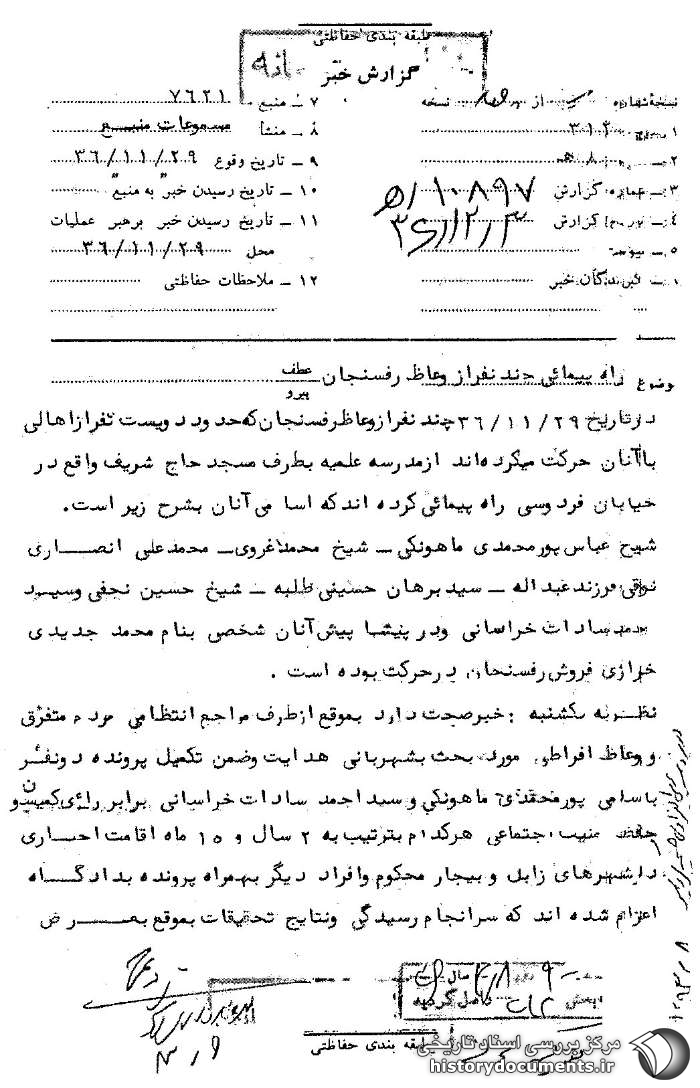 طبقه بندی حفاظتی
گزارش خبر
نسخه شماره از نسخه
۱ ـ ۳۱۲
۲ ـ ۸ هـ
۳ ـ شماره گزارش ۱۰۸۹۷/ه
۴ ـ گزارش ۳۶/۱۲/۳
۵ ـ پیوست
گیرندگان خبر
۷ ـ منبع ۷۶۲۱
۸ ـ منشأ مسموعات منبع
۹ ـ تاریخ وقوع ۳۶/۱۱/۲۹
۱۰ ـ تاریخ رسیدن خبر به منبع "
۱۱ ـ تاریخ رسیدن خبر برهبر عملیات
محل ۳۶/۱۱/۲۹
۱۲ ـ ملاحظات حفاظتی
موضوع راه پیمائی چند نفر از وعاظ رفسنجان عطف
پیرو
در تاریخ ۳۶/۱۱/۲۹ چند نفر از وعاظ رفسنجان که حدود دویست نفر از اهالی
با آنان حرکت میکرده اند از مدرسه علمیه بطرف مسجد حاج شریف واقع در
خیابان فردوسی راه پیمائی کرده اند که اسامی آنان بشرح زیر است.
شیخ عباس پورمحمدی ماهونکی ـ شیخ محمد غروی ـ محمد علی انصاری
نوقی فرزند عبداله ـ سید برهان حسینی طلبه ـ شیخ حسین نجفی و سید
سادات خراسانی و در پیشا پیش آنان شخصی بنام محمد جدیدی
خرازی فروش رفسنجان در حرکت بوده است .
نظریه یکشنبه : خبر صحت دارد بموقع از طرف مراجع انتظامی مردم متفرق
و وعاظ افراطی مورد بحث بشهربانی هدایت و ضمن تکمیل پرونده دو نفر
باسامی پورمحمدی ماهونکی و سید احمد سادات خراسانی برابر رای کمیسیون
حفظ امنیت اجتماعی هر کدام بترتیب به ۲ سال و ۱۵ ماه اقامت اجباری
در شهرهای زابل و بیجار محکوم و افراد دیگر بهمراه پرونده بدادگاه
اعزام شده اند که سرانجام رسیدگی و نتایج تحقیقات بموقع بعرض
طبقه بندی حفاظتی
مرکز بررسی اسناد تاریخی
historydocuments.ir